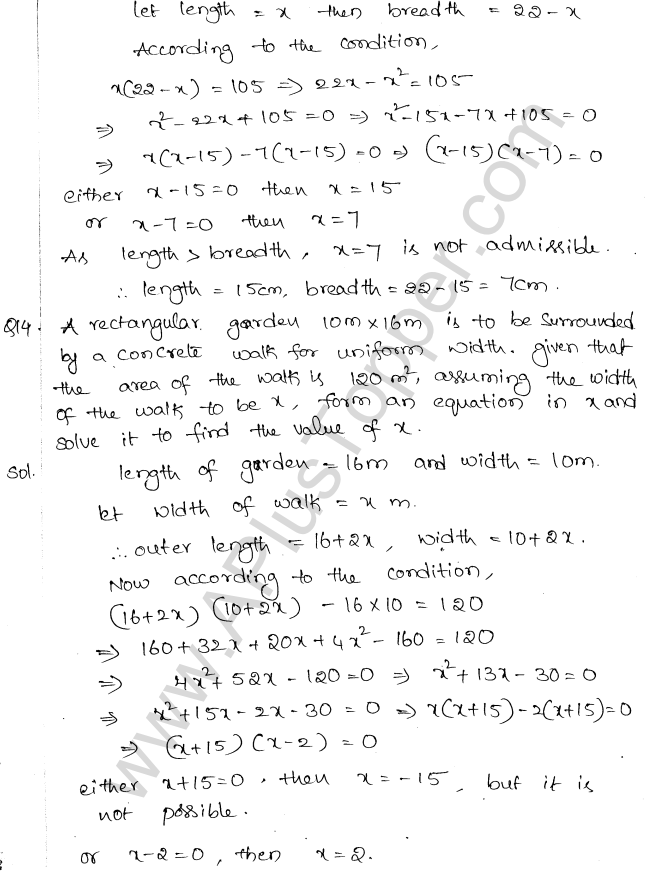 let length = x then breadth = 22 - x
According to the condition,
x(22 - x) = 105 => 22x - x² = 105
=> x² - 22x + 105 = 0 => x² - 15x - 7x + 105 = 0
=> x(x-15) - 7(x-15) = 0 => (x-15)(x-7) = 0
either x - 15 = 0 then x = 15
or x - 7 = 0 then x = 7
As length > breadth, x = 7 is not admissible.
∴ length = 15cm, breadth = 22 - 15 = 7cm.
Q14. A rectangular garden 10m × 16m is to be surrounded
by a concrete walk for uniform width. given that
the area of the walk is 120 m², assuming the width
of the walk to be x, form an equation in x and
solve it to find the value of x.
Sol. length of garden = 16m and width = 10m.
let width of walk = x m.
∴ outer length = 16+2x, width = 10+2x.
Now according to the condition,
(16+2x) (10+2x) - 16×10 = 120
=> 160 + 32x + 20x + 4x² - 160 = 120
=> 4x² + 52x - 120 = 0 => x² + 13x - 30 = 0
=> x² + 15x - 2x - 30 = 0 => x(x+15) - 2(x+15) = 0
=> (x+15) (x-2) = 0
either x+15 = 0, then x = -15, but it is
not possible.
or x-2 = 0, then x = 2.
www.APlusTopper.com